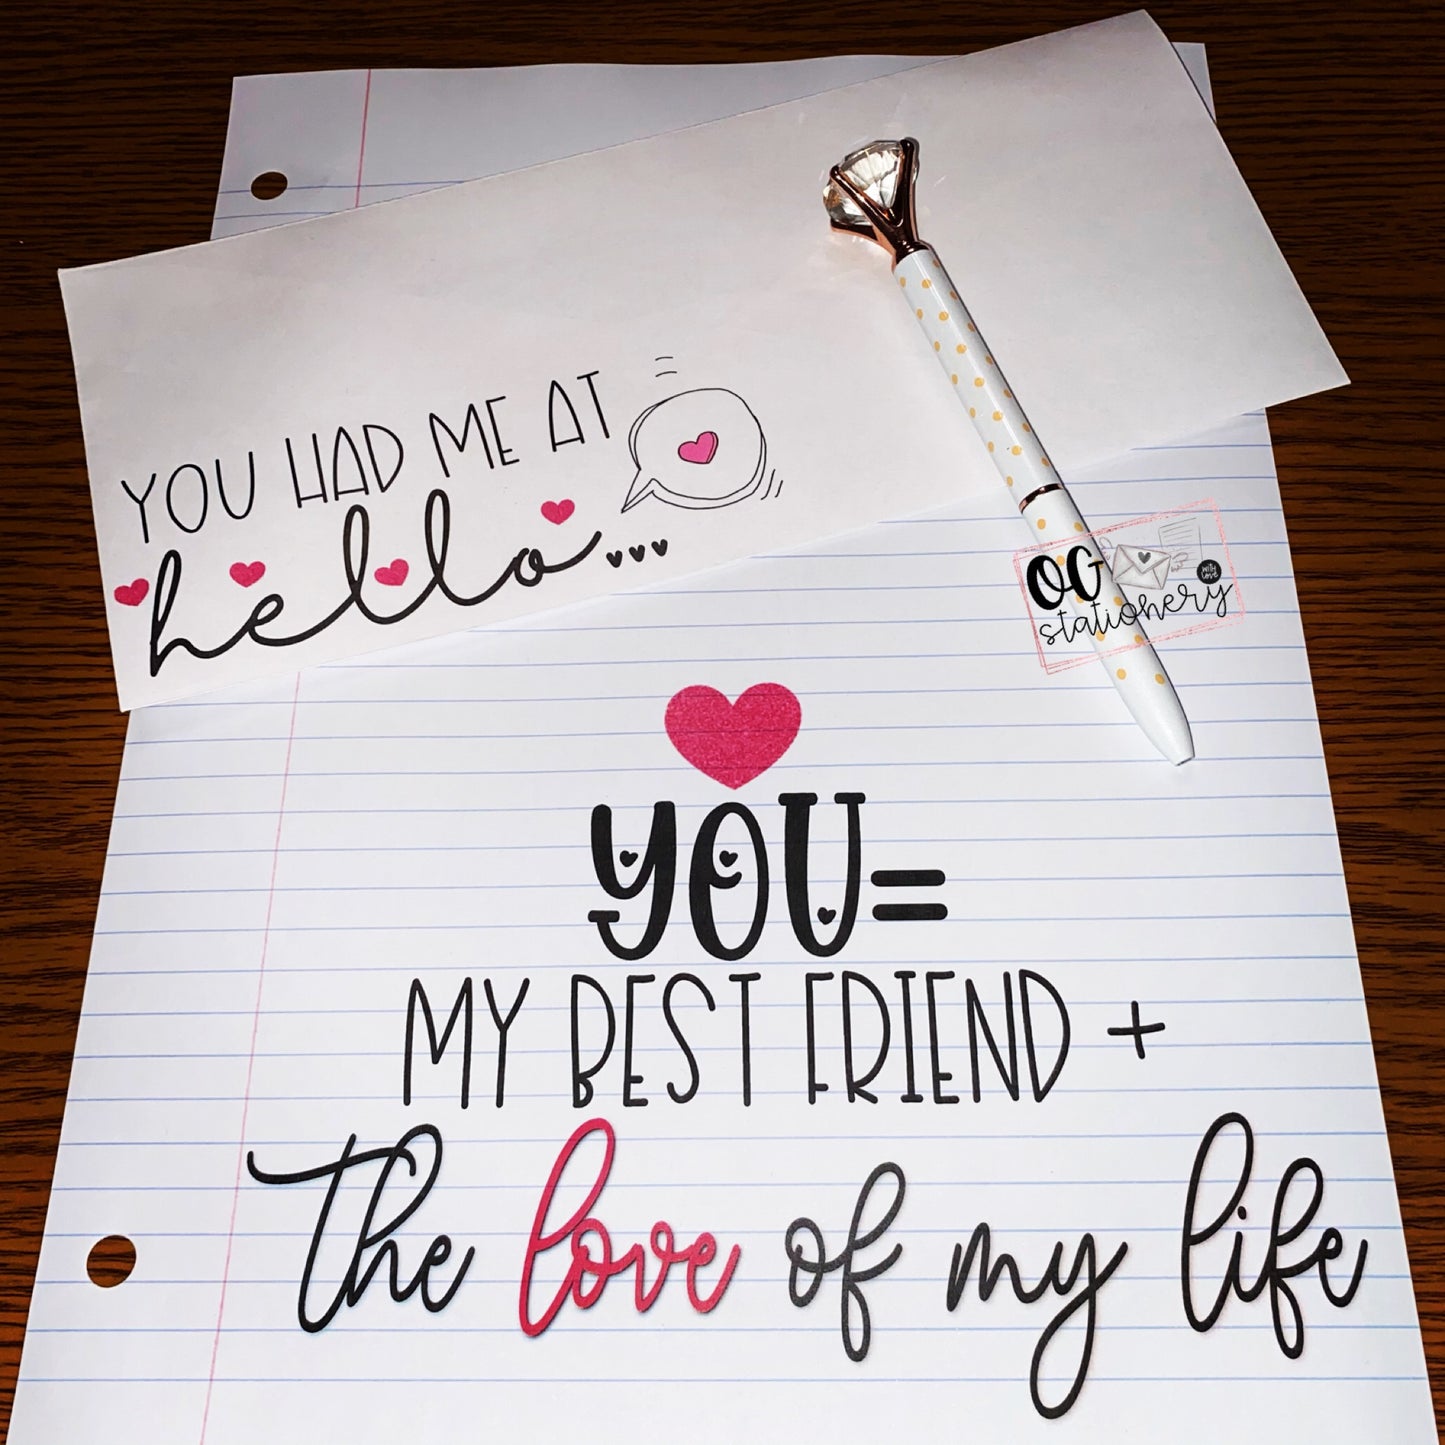 YOU HAD ME AT
hello...
OG
with love
stationery
YOU=
MY BEST FRIEND +
the love of my life